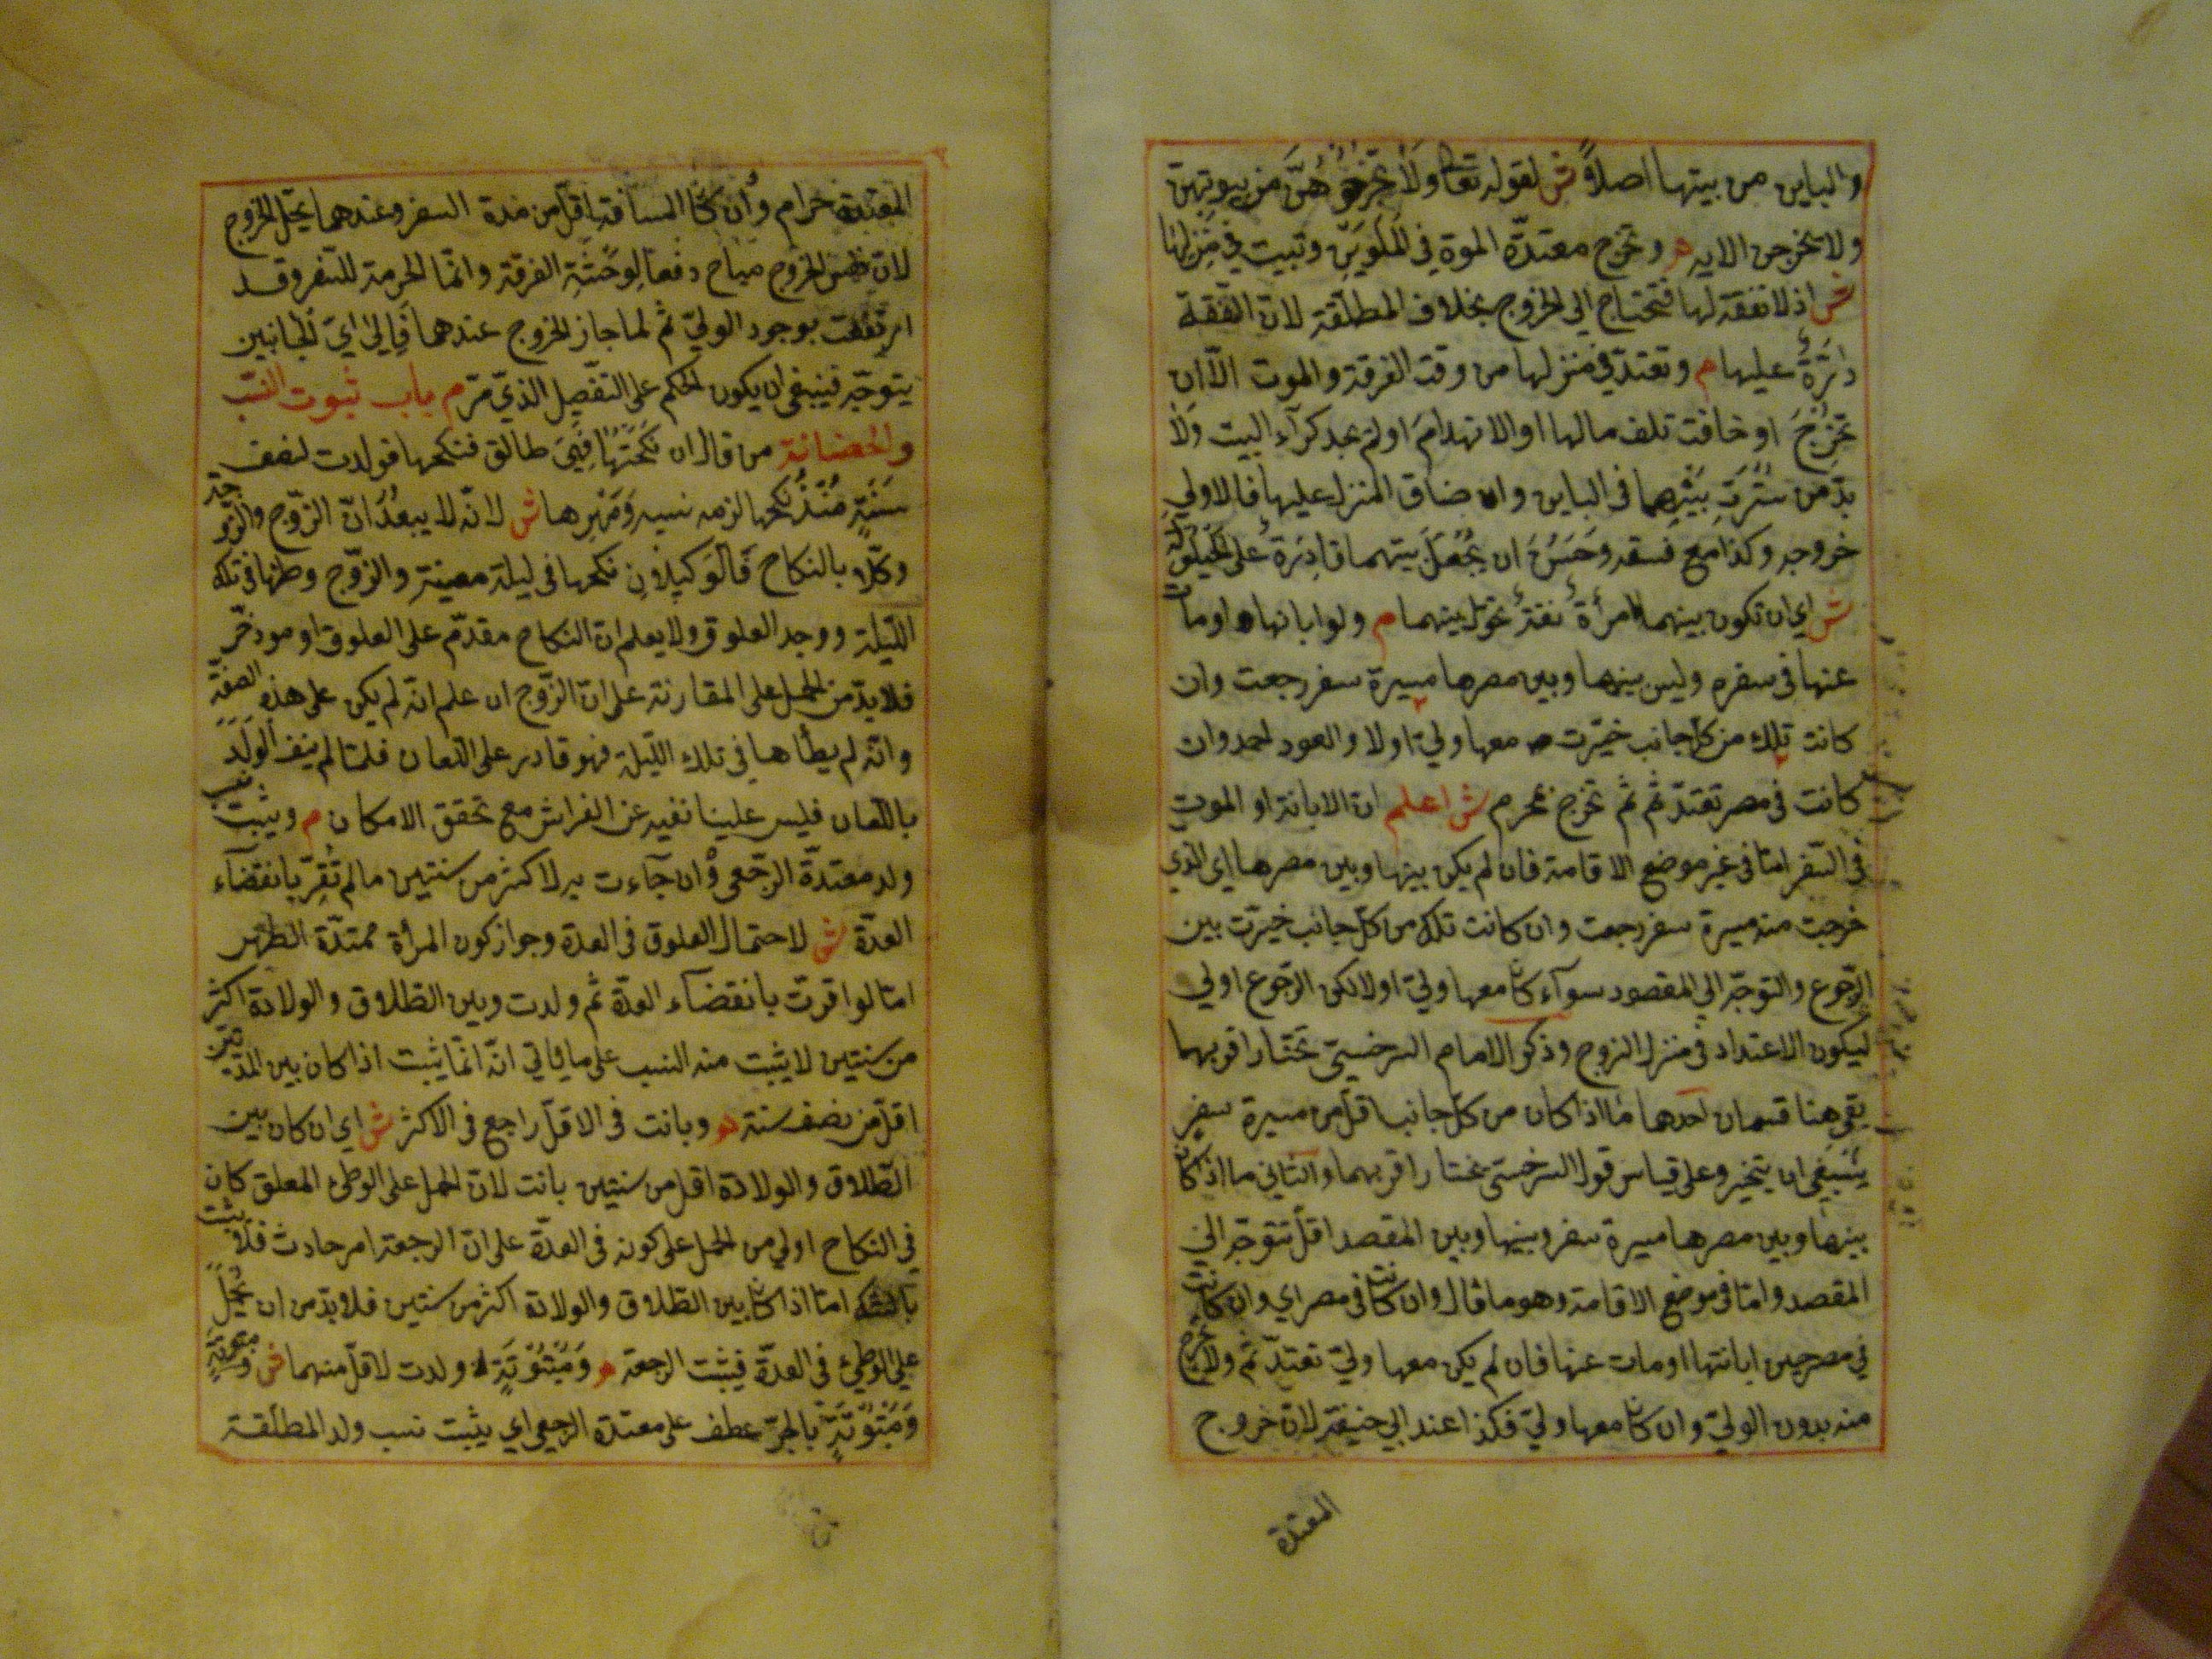 والباين من بيتها اصلا ش لقوله تعا ولا تخرجوهن من بيوتهن
ولا يخرجن الايه م وتخرج معتدة الموة في الملوين وتبيت في منزلها
ش اذ لا نفقة لها فتحتاج الي الخروج بخلاف المطلقة لان النفقة
دائرة عليها م وتعتد في منزلها من وقت الفرقة والموت الا ان
تخرج او خافت تلف مالها او الانهدام او لم تجد كرآء البيت ولا
بد من سترة بينهما في الباين وان ضاق المنزل عليها فالاولي
خروجه وكذا مع فسقه وحسن ان يجعل بينهما قادرة على الحيلولة
ش اي ان تكون بينهما امرأة ثقة تحول بينهما م ولو ابانها او مات
عنها في سفره وليس بينها وبين مصرها مسيرة سفر رجعت وان
كانت تلك من كل جانب خيرت معها ولي او لا والعود احمد وان
كانت في مصر تعتد ثم ثم تخرج بمحرم ش اعلم ان الابانة او الموت
في السفر اما في غير موضع الاقامة فان لم يكن بينها وبين مصرها اي الذي
خرجت منه مسيرة سفر رجعت وان كانت تلك من كل جانب خيرت بين
الرجوع والتوجه الي المقصود سوآء كان معها ولي او لا لكن الرجوع اولي
ليكون الاعتداد في منزل الزوج وذكر الامام السرخسي تختار اقربهما
بقي هنا قسمان احدهما ما اذا كان من كل جانب اقل من مسيرة سفر
ينبغي ان يتخير وعلى قياس قول السرخسي تختار اقربهما والثاني ما اذا كان
بينها وبين مصرها مسيرة سفر وبينها وبين المقصد اقل تتوجه الي
المقصد واما في موضع الاقامة وهو ما قال وان كانت في مصر اي وان كانت
في مصر حين ابانتها او مات عنها فان لم يكن معها ولي تعتد ثم ولا تخرج
منه بدون الولي وان كان معها ولي فكذا عند ابي حنيفة لان خروج
المعتدة
المعتدة حرام وان كان المسافة اقل من مدة السفر وعندهما يحل الخروج
لان نفس الخروج مباح دفعا لوحشة الفرقة وانما الحرمة للسفر وقد
ارتفعت بوجود الولي ثم لما جاز الخروج عندهما فالي اي الجانبين
يتوجه فينبغي ان يكون الحكم على التفصيل الذي مر م باب ثبوت النسب
والحضانة من قال ان نكحتها فهي طالق فنكحها فولدت لنصف
سنة منذ نكحها لزمه نسبه ومهرها ش لانه لا يبعد ان الزوج والزوجة
وكلا بالنكاح فالوكيلان نكحها في ليلة معينة والزوج وطئها في تلك
الليلة ووجد العلوق ولا يعلم ان النكاح مقدم على العلوق او موخر
فلا بد من الحمل على المقارنة على ان الزوج ان علم انه لم يكن على هذه الصفة
وانه لم يطأها في تلك الليلة فهو قادر على اللعان فلما لم ينف الولد
باللعان فليس علينا نفيه عن الفراش مع تحقق الامكان م ويثبت نسب
ولد معتدة الرجعي وان جآءت به لاكثر من سنتين ما لم تقر بانقضآء
العدة ش لاحتمال العلوق في العدة وجواز كون المرأة ممتدة الطهر
اما لو اقرت بانقضآء العدة ثم ولدت وبين الطلاق والولادة اكثر
من سنتين لا يثبت منه النسب على ما ياتي انه انما يثبت اذا كان بين المدتين
اقل من نصف سنة م وبانت في الاقل راجع في الاكثر ش اي ان كان بين
الطلاق والولادة اقل من سنتين بانت لان الحمل على الوطئ المعلق كان
في النكاح اولي من الحمل على كونه في العدة على ان الرجعة امر حادث فلا يثبت
بالشك اما اذا كان بين الطلاق والولادة اكثر من سنتين فلا بد من ان يحمل
على الوطئ في العدة فيثبت الرجعة م ومبتوتة ولدت لاقل منهما ش
ومبتوتة بالجر عطف على معتدة الرجعي اي يثبت نسب ولد المطلقة